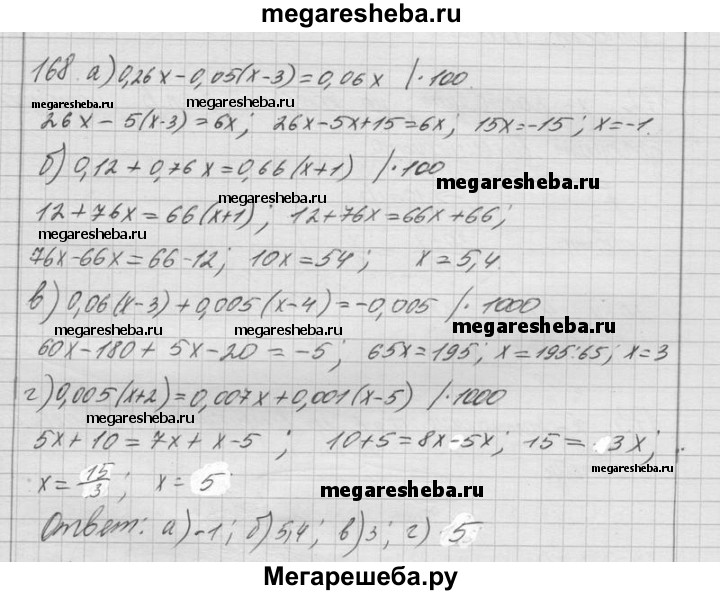 megaresheba.ru
168. а) 0,26х-0,05(х-3)=0,06х /·100.
megaresheba.ru megaresheba.ru
26х - 5(х-3)=6х; 26х-5х+15=6х; 15х=-15; х=-1.
б) 0,12+0,76х=0,66(х+1) /·100
megaresheba.ru
megaresheba.ru
12+76х=66(х+1); 12+76х=66х+66;
megaresheba.ru
76х-66х=66-12; 10х=54; х=5,4.
в) 0,06(х-3)+0,005(х-4)=-0,005 /·1000
megaresheba.ru megaresheba.ru megaresheba.ru
60х-180+5х-20=-5; 65х=195; х=195:65; х=3
г) 0,005(х+2)=0,007х+0,001(х-5) /·1000
megaresheba.ru
5х+10=7х+х-5; 10+5=8х-5х; 15=3х;
megaresheba.ru
х=15/3; х=5
megaresheba.ru
Ответ: а)-1; б)5,4; в)3; г) 5
megaresheba.ru
Мегарешеба.ру